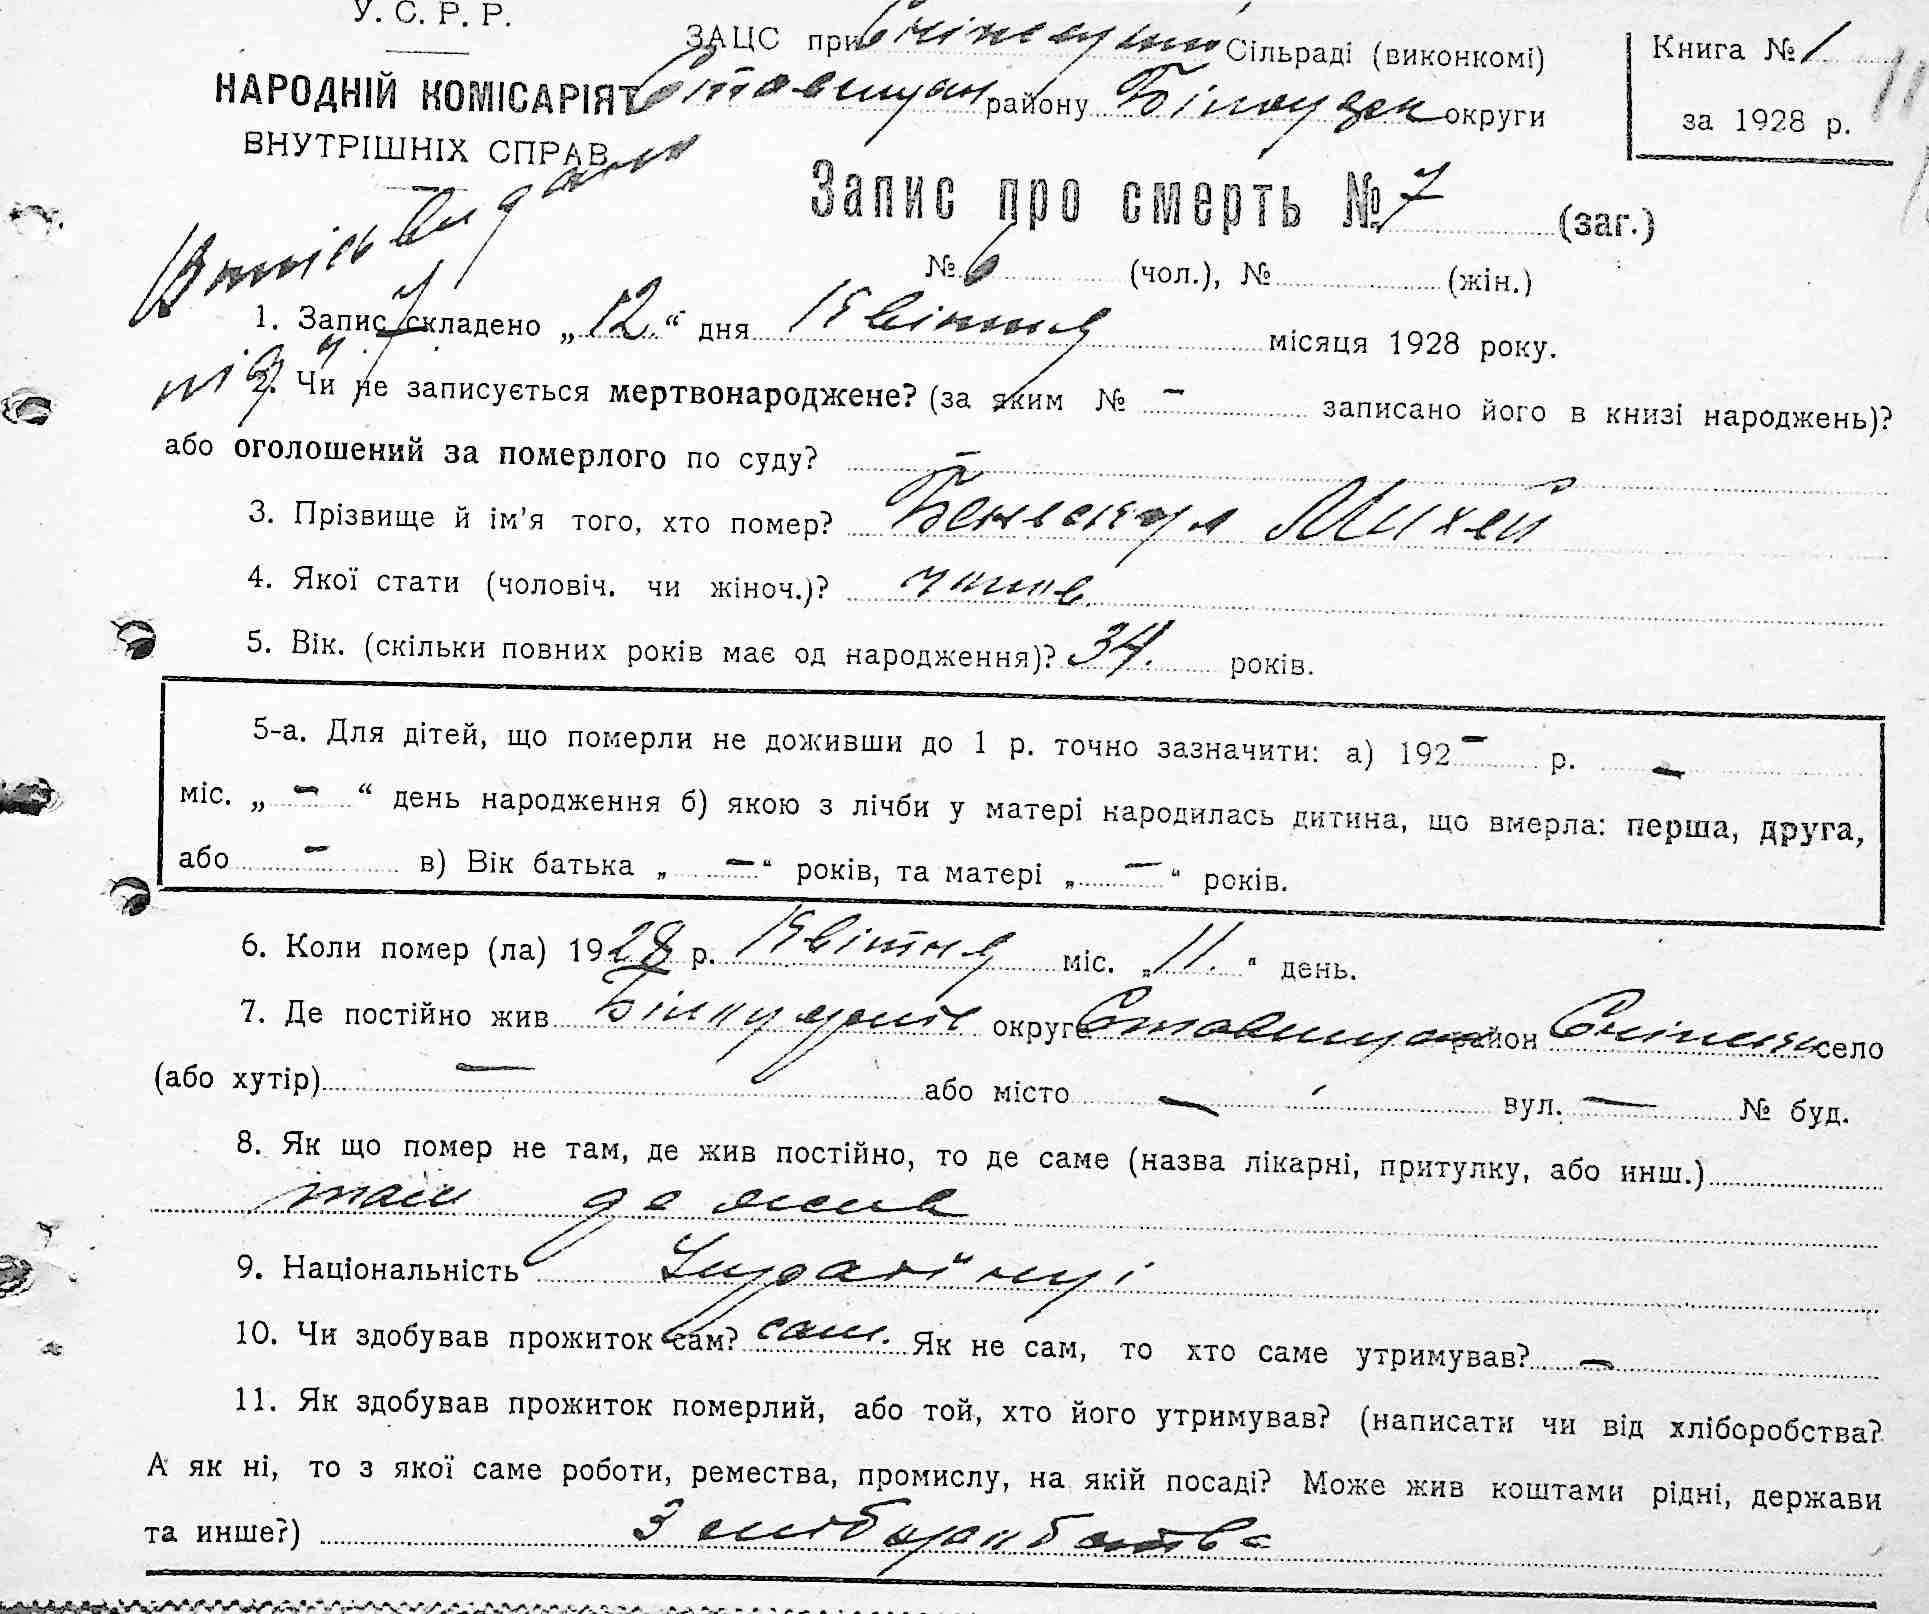 У. С. Р. Р.
НАРОДНІЙ КОМІСАРІЯТ
ВНУТРІШНІХ СПРАВ
ЗАЦС при Сніжецькій Сільраді (виконкомі)
Ставищан району Білоцерк округи
Книга № 1
за 1928 р.
Запис про смерть № 7 (заг.)
№ 6 (чол.), № (жін.)
Виписъ видана
1. Запис складено „ 12 “ дня Квітня місяця 1928 року.
2. Чи не записується мертвонароджене? (за яким № – записано його в книзі народжень)?
або оголошений за померлого по суду? –
3. Прізвище й ім'я того, хто помер? Михей
4. Якої стати (чоловіч. чи жіноч.)? чолов.
5. Вік. (скільки повних років має од народження)? 34. років.
5-а. Для дітей, що померли не доживши до 1 р. точно зазначити: а) 192 – р. –
міс. „ – “ день народження б) якою з лічби у матері народилась дитина, що вмерла: перша, друга,
або – в) Вік батька „ – “ років, та матері „ – “ років.
6. Коли помер (ла) 1928 р. Квітня міс. „ 11. “ день.
7. Де постійно жив округа Ставищан район село
(або хутір) – або місто – вул. – № буд.
8. Як що помер не там, де жив постійно, то де саме (назва лікарні, притулку, або инш.)
там де жив
9. Національність Українці
10. Чи здобував прожиток сам? сам. Як не сам, то хто саме утримував? –
11. Як здобував прожиток померлий, або той, хто його утримував? (написати чи від хліборобства?
А як ні, то з якої саме роботи, ремества, промислу, на якій посаді? Може жив коштами рідні, держави
та инше?) З хліборобства